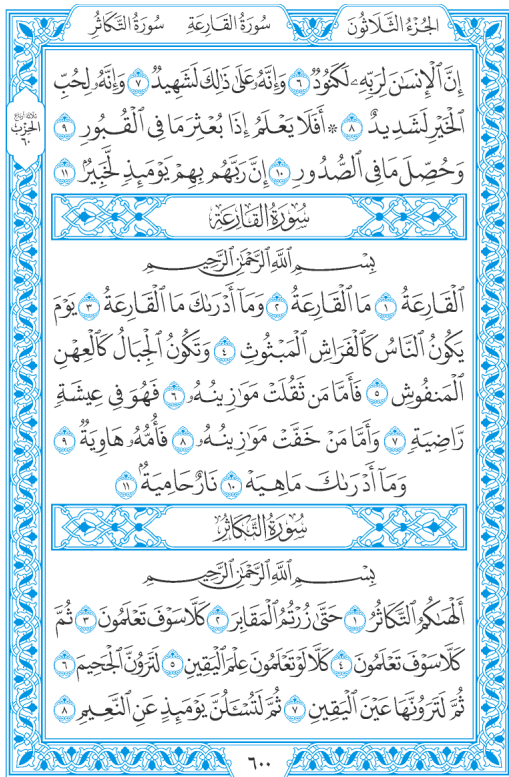 الجُزْءُ الثَّلَاثُونَ
سُورَةُ القَارِعَةِ سُورَةُ التَّكَاثُرِ
ثلاثة أرباع
الحِزْب
٦٠
إِنَّ ٱلْإِنسَٰنَ لِرَبِّهِۦ لَكَنُودٌ ٦ وَإِنَّهُۥ عَلَىٰ ذَٰلِكَ لَشَهِيدٌ ٧ وَإِنَّهُۥ لِحُبِّ
ٱلْخَيْرِ لَشَدِيدٌ ٨ ۞ أَفَلَا يَعْلَمُ إِذَا بُعْثِرَ مَا فِى ٱلْقُبُورِ ٩
وَحُصِّلَ مَا فِى ٱلصُّدُورِ ١٠ إِنَّ رَبَّهُم بِهِمْ يَوْمَئِذٍ لَّخَبِيرٌۢ ١١
سُورَةُ القَارِعَةِ
بِسْمِ ٱللَّهِ ٱلرَّحْمَٰنِ ٱلرَّحِيمِ
ٱلْقَارِعَةُ ١ مَا ٱلْقَارِعَةُ ٢ وَمَآ أَدْرَىٰكَ مَا ٱلْقَارِعَةُ ٣ يَوْمَ
يَكُونُ ٱلنَّاسُ كَٱلْفَرَاشِ ٱلْمَبْثُوثِ ٤ وَتَكُونُ ٱلْجِبَالُ كَٱلْعِهْنِ
ٱلْمَنفُوشِ ٥ فَأَمَّا مَن ثَقُلَتْ مَوَٰزِينُهُۥ ٦ فَهُوَ فِى عِيشَةٍ
رَّاضِيَةٍ ٧ وَأَمَّا مَنْ خَفَّتْ مَوَٰزِينُهُۥ ٨ فَأُمُّهُۥ هَاوِيَةٌ ٩
وَمَآ أَدْرَىٰكَ مَا هِيَهْ ١٠ نَارٌ حَامِيَةٌۢ ١١
سُورَةُ التَّكَاثُرِ
بِسْمِ ٱللَّهِ ٱلرَّحْمَٰنِ ٱلرَّحِيمِ
أَلْهَىٰكُمُ ٱلتَّكَاثُرُ ١ حَتَّىٰ زُرْتُمُ ٱلْمَقَابِرَ ٢ كَلَّا سَوْفَ تَعْلَمُونَ ٣ ثُمَّ
كَلَّا سَوْفَ تَعْلَمُونَ ٤ كَلَّا لَوْ تَعْلَمُونَ عِلْمَ ٱلْيَقِينِ ٥ لَتَرَوُنَّ ٱلْجَحِيمَ ٦
ثُمَّ لَتَرَوُنَّهَا عَيْنَ ٱلْيَقِينِ ٧ ثُمَّ لَتُسْـَٔلُنَّ يَوْمَئِذٍ عَنِ ٱلنَّعِيمِ ٨
٦٠٠